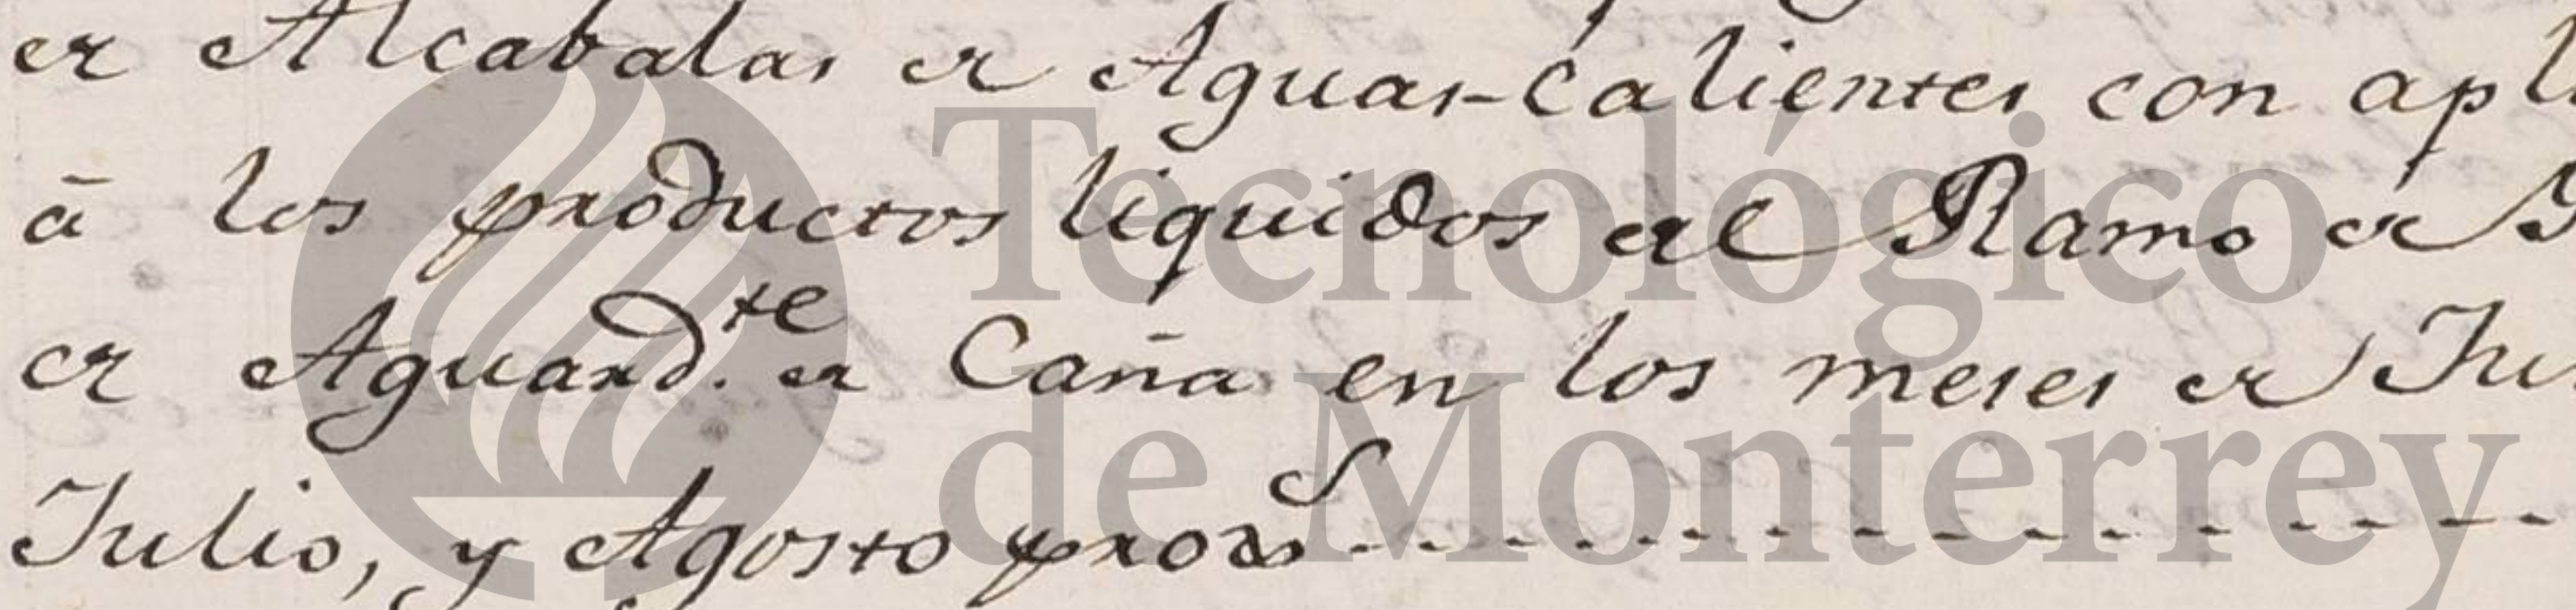 de Alcabalas de Aguas-calientes con apl
â los productos liquidos del Ramo de
de Aguard.te de Caña en los meses de Ju
Julio, y Agosto
Tecnológico
de Monterrey